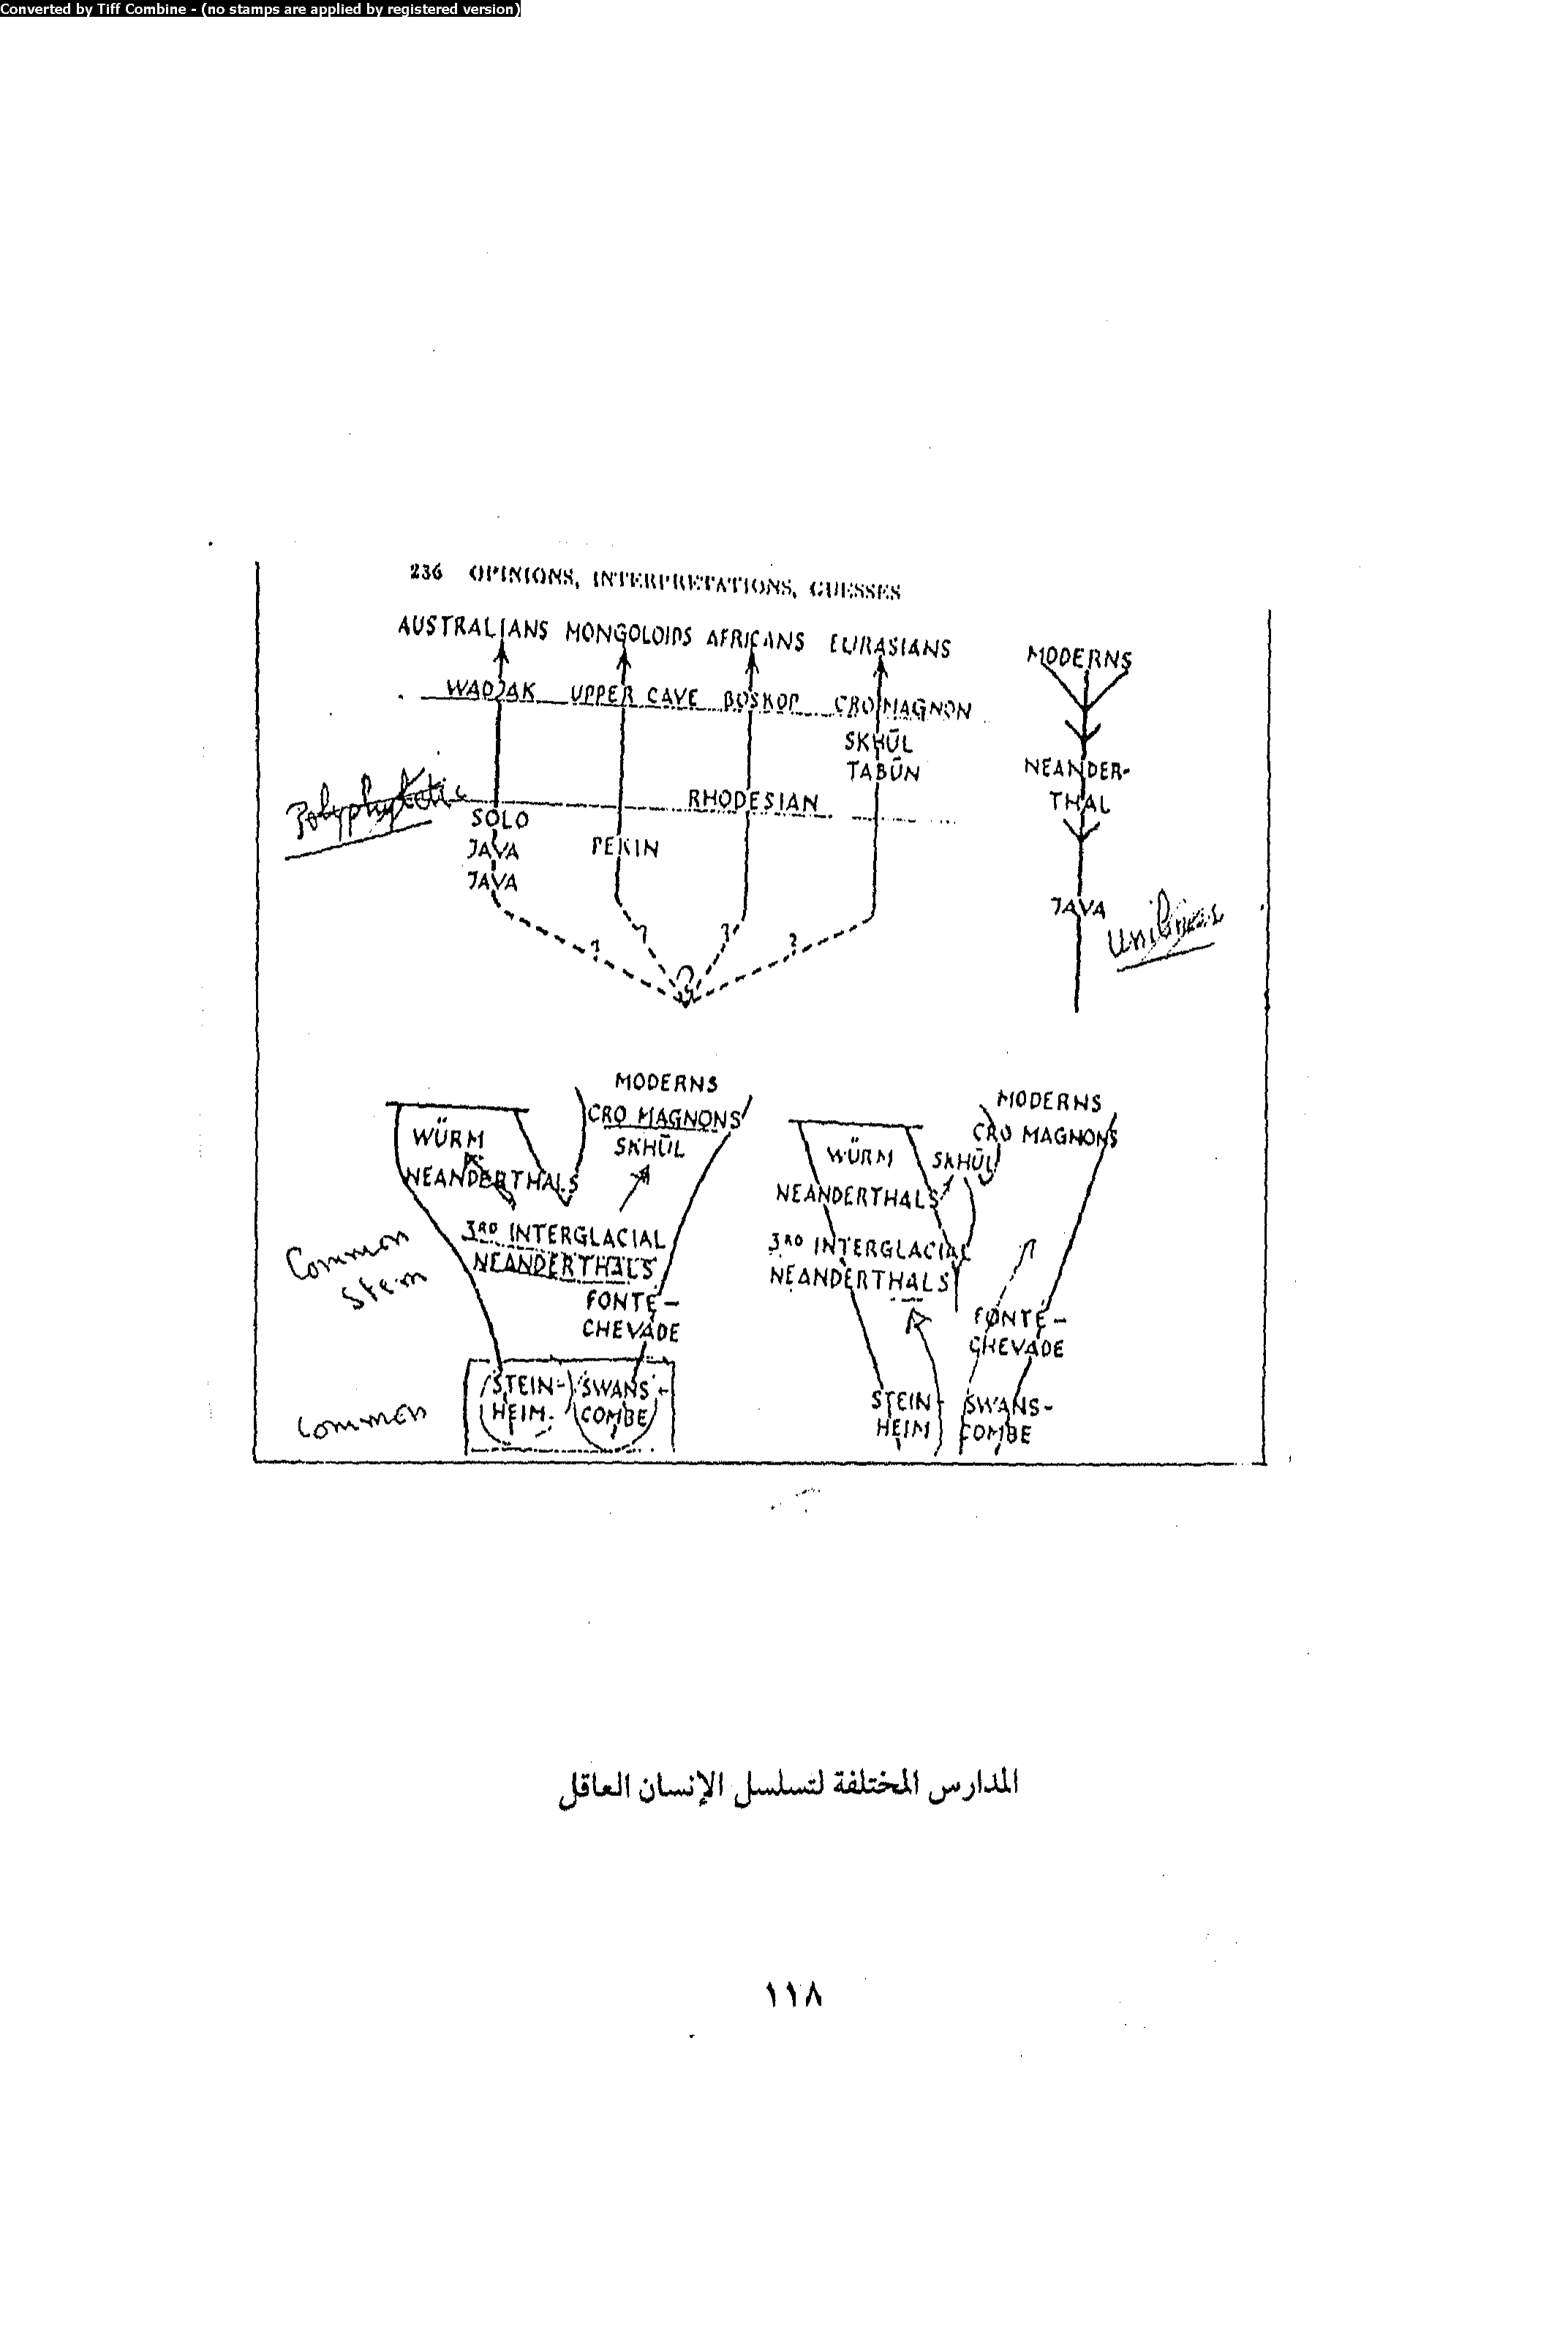 Converted by Tiff Combine - (no stamps are applied by registered version)
236 OPINIONS, INTERPRETATIONS, GUESSES
AUSTRALIANS MONGOLOIDS AFRICANS EURASIANS
WADJAK UPPER CAVE BOSKOP CRO MAGNON
SKHŪL
TABŪN
Polyphyletic
RHODESIAN
SOLO
JAVA
PEKIN
JAVA
? ? ? ?
?
MODERNS
NEANDER-
THAL
JAVA
Unilinear
MODERNS
CRO MAGNONS
WÜRM
SKHŪL
NEANDERTHALS
3RD INTERGLACIAL
NEANDERTHALS
FONTÉ-
CHEVADE
Common
Stem
STEIN-
HEIM
SWANS-
COMBE
Common
MODERNS
CRO MAGNONS
WÜRM
SKHŪL
NEANDERTHALS
3RD INTERGLACIAL
NEANDERTHALS
FONTÉ-
CHEVADE
STEIN-
HEIM
SWANS-
COMBE
المدارس المختلفة لتسلسل الإنسان العاقل
١١٨